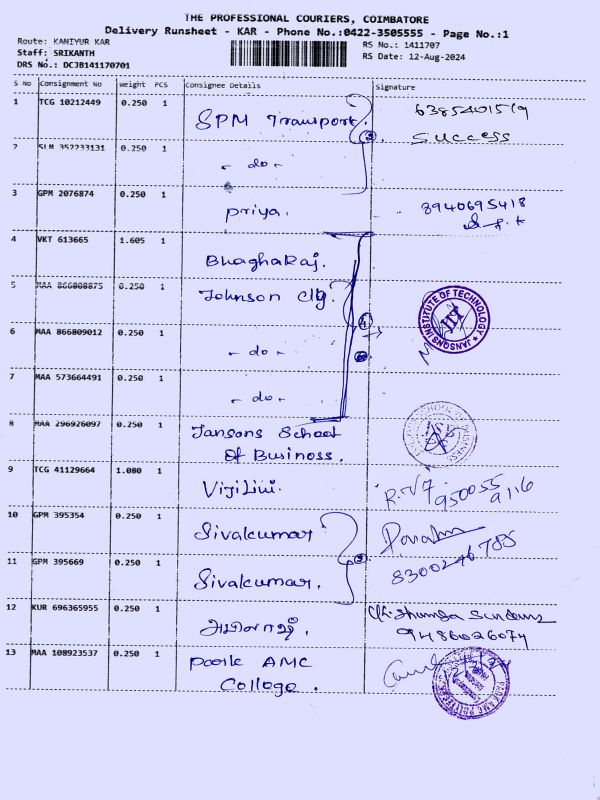 THE PROFESSIONAL COURIERS, COIMBATORE
Delivery Runsheet - KAR - Phone No.:0422-3505555 - Page No.:1
Route: KANIYUR KAR
RS No.: 1411707
Staff: SRIKANTH
RS Date: 12-Aug-2024
DRS No.: DCJB141170701
S No Consignment No Weight PCS Consignee Details Signature
1 TCG 10212449 0.250 1 SPM Transport. 6385401519
Success
2 SLM 352233131 0.250 1 - do -
3 GPM 2076874 0.250 1 priya. 8940695418
4 VKT 613665 1.605 1 BhaghaRaj.
5 MAA 866808875 0.250 1 Johnson clg.
JANSONS INSTITUTE OF TECHNOLOGY
JIT
6 MAA 866809012 0.250 1 - do -
7 MAA 573664491 0.250 1 - do -
8 MAA 296926097 0.250 1 Jansons School
of Business.
9 TCG 41129664 1.080 1 Vijilini. 950055
10 GPM 395354 0.250 1 Sivakumar
11 GPM 395669 0.250 1 Sivakumar. 8300246785
12 KUR 696365955 0.250 1
9486026074
13 MAA 108923537 0.250 1 Park AMC
College.